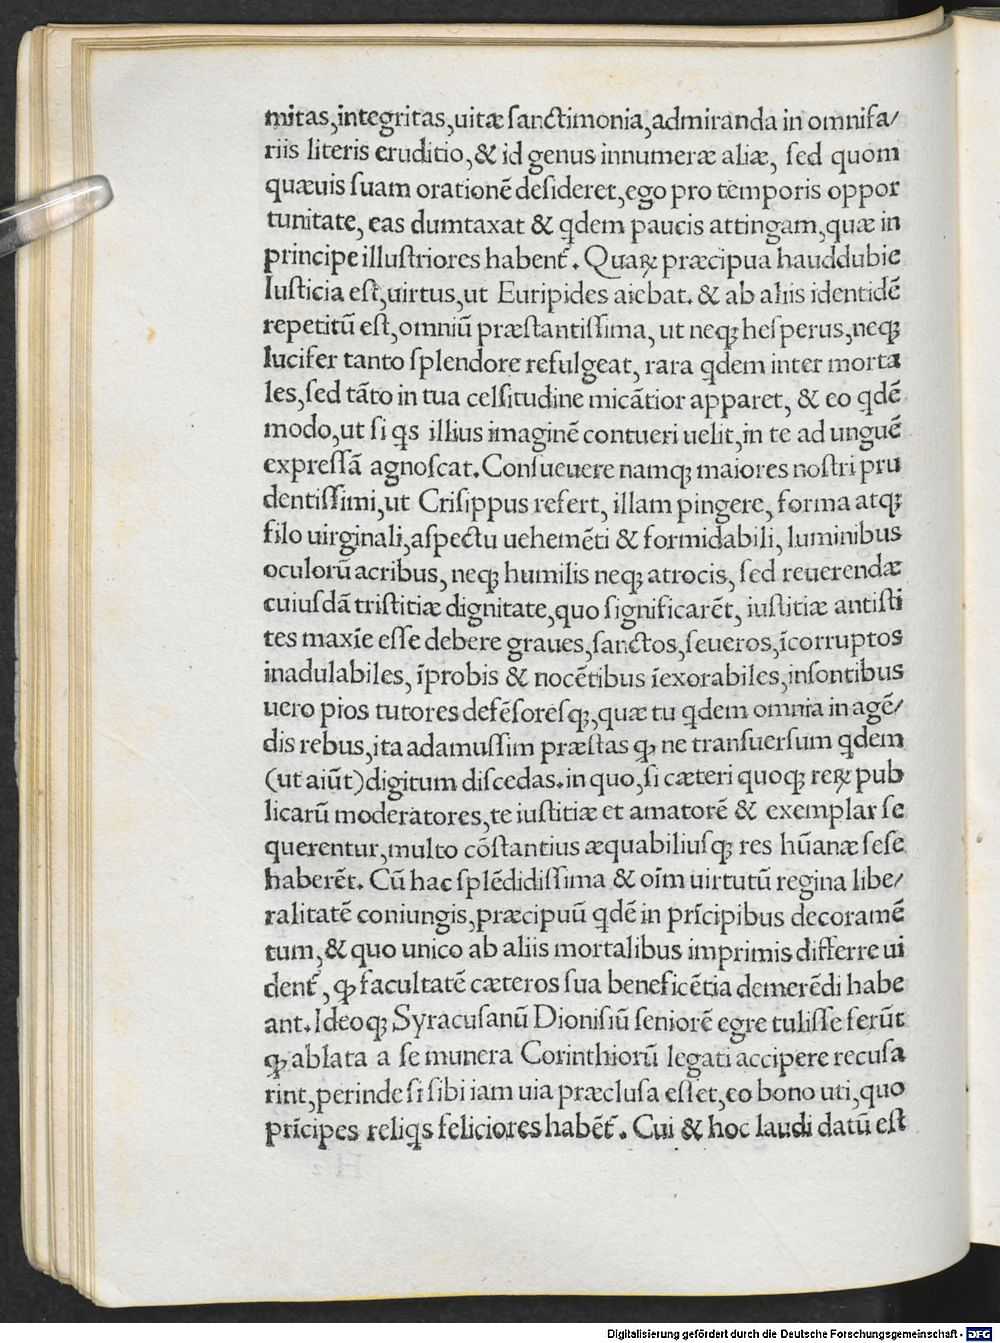 mitas,integritas,uitæ ſanctimonia,admiranda in omnifa/
riis literis eruditio,& id genus innumeræ aliæ, ſed quom
quæuis ſuam orationē deſideret,ego pro temporis oppor
tunitate, eas dumtaxat & qdem paucis attingam,quæ in
principe illuſtriores habent᷑. Quaꝝ præcipua hauddubie
Iuſticia eſt,uirtus,ut Euripides aiebat. & ab aliis identidē
repetitū eſt,omniū præſtantiſſima, ut neqꝫ heſperus,neqꝫ
lucifer tanto ſplendore refulgeat, rara qdem inter morta
les,ſed tāto in tua celſitudine micātior apparet, & eo qdē
modo,ut ſi qs illius imaginē contueri uelit,in te ad unguē
expreſſā agnoſcat. Conſueuere namqꝫ maiores noſtri pru
dentiſſimi,ut Criſippus refert, illam pingere, forma atqꝫ
filo uirginali,aſpectu uehemēti & formidabili, luminibus
oculorū acribus, neqꝫ humilis neqꝫ atrocis, ſed reuerendæ
cuiuſdā triſtitiæ dignitate,quo ſignificarēt, iuſtitiæ antiſti
tes maxīe eſſe debere graues,ſanctos,ſeueros,īcorruptos
inadulabiles, īprobis & nocētibus īexorabiles,inſontibus
uero pios tutores defēſoreſqꝫ,quæ tu qdem omnia in agē/
dis rebus,ita adamuſſim præſtas ꝙ ne tranſuerſum qdem
(ut aiūt)digitum diſcedas.in quo,ſi cæteri quoqꝫ reꝝ pub
licarū moderatores,te iuſtitiæ et amatorē & exemplar ſe
querentur,multo cōſtantius æquabiliuſqꝫ res hūanæ ſeſe
haberēt. Cū hac ſplēdidiſſima & oīm uirtutū regina libe/
ralitatē coniungis,præcipuū qdē in prīcipibus decoramē
tum,& quo unico ab aliis mortalibus imprimis differre ui
dent᷑, ꝙ facultatē cæteros ſua beneficētia demerēdi habe
ant.Ideoqꝫ Syracuſanū Dioniſiū ſeniorē egre tuliſſe ferūt
ꝙ ablata a ſe munera Corinthiorū legati accipere recuſa
rint,perinde ſi ſibi iam uia præcluſa eſſet,eo bono uti,quo
prīcipes reliqs feliciores habēt᷑. Cui & hoc laudi datū eſt
Digitalisierung gefördert durch die Deutsche Forschungsgemeinschaft - DFG